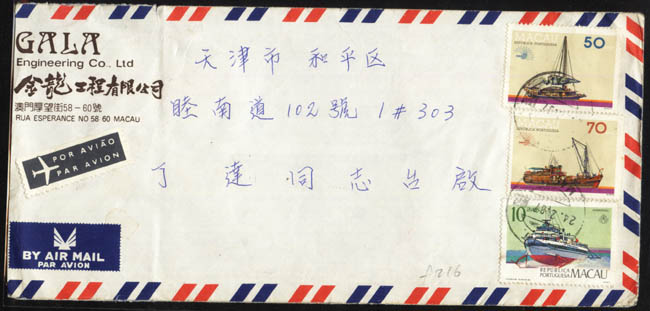 GALA
Engineering Co., Ltd
金龍工程有限公司
澳門厚望街58-60號
RUA ESPERANCE NO 58 60 MACAU
POR AVIÃO
PAR AVION
BY AIR MAIL
PAR AVION
天津市 和平区
睦南道102號 1#303
丁達同志台啟
MACAU
50
REPUBLICA PORTUGUESA
MACAU
70
REPUBLICA PORTUGUESA
10
REPUBLICA
PORTUGUESA MACAU